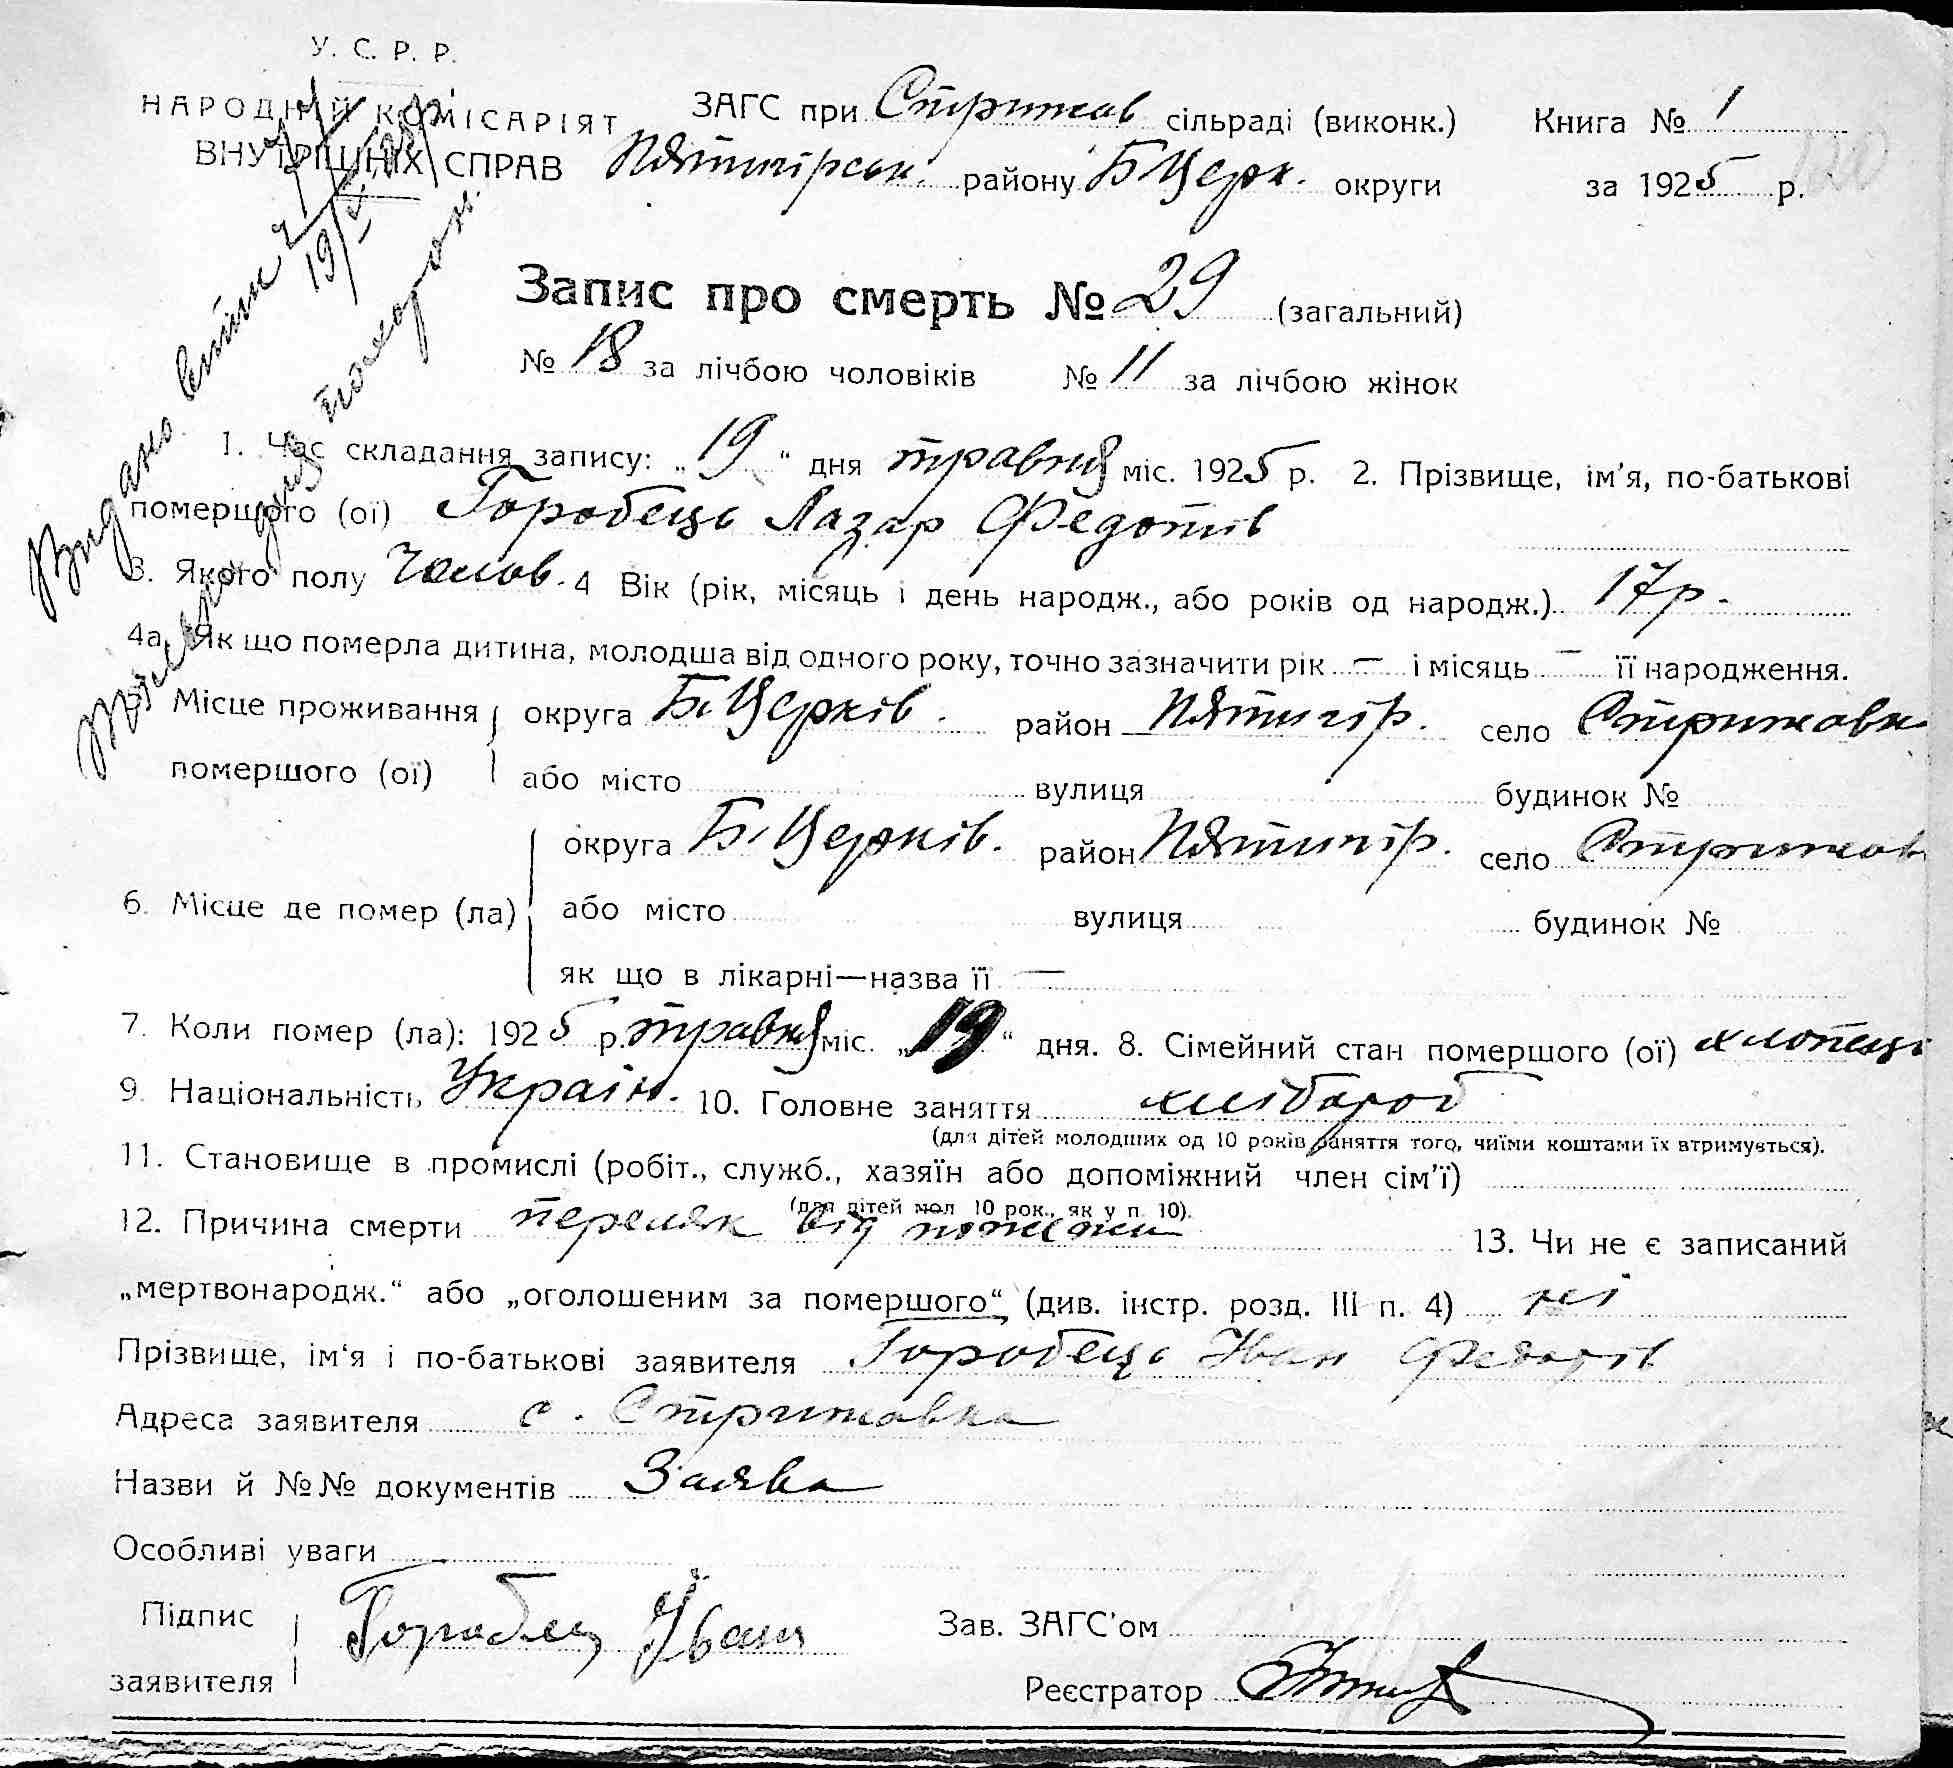 У. С. Р. Р.
НАРОДНІЙ КОМІСАРІЯТ
ВНУТРІШНІХ СПРАВ
ЗАГС при Стрижав сільраді (виконк.)
Пятигірськ. району Б Церк. округи
Книга № 1
за 1925 р.
Видано витяг
19/V 25
тілеко для похорон.
Запис про смерть № 29 (загальний)
№ 18 за лічбою чоловіків № 11 за лічбою жінок
1. Час складання запису: „19" дня травня міс. 1925 р. 2. Прізвище, ім'я, по-батькові
помершого (ої) Горобець Лазар Федотів
3. Якого полу Чолов. 4 Вік (рік, місяць і день народж., або років од народж.) 17 р.
4а. Як що померла дитина, молодша від одного року, точно зазначити рік — і місяць — її народження.
5. Місце проживання округа Б. Церків. район Пятигір. село Стрижавка
помершого (ої) або місто вулиця будинок №
округа Б. Церків. район Пятигір. село Стрижав
6. Місце де помер (ла) або місто вулиця будинок №
як що в лікарні—назва її —
7. Коли помер (ла): 1925 р. травня міс. „19" дня. 8. Сімейний стан помершого (ої) хлопець
9. Національність Україн. 10. Головне заняття хлібороб
(для дітей молодших од 10 років заняття того, чиїми коштами їх втримується).
11. Становище в промислі (робіт., служб., хазяїн або допоміжний член сім'ї)
(для дітей мол 10 рок., як у п. 10).
12. Причина смерти переляк від пожежи 13. Чи не є записаний
„мертвонародж." або „оголошеним за помершого" (див. інстр. розд. III п. 4) ні
Прізвище, ім'я і по-батькові заявителя Горобець Иван Федотів
Адреса заявителя с. Стрижавка
Назви й №№ документів Заява
Особливі уваги
Підпис заявителя Горобец Іван
Зав. ЗАГС'ом
Реєстратор